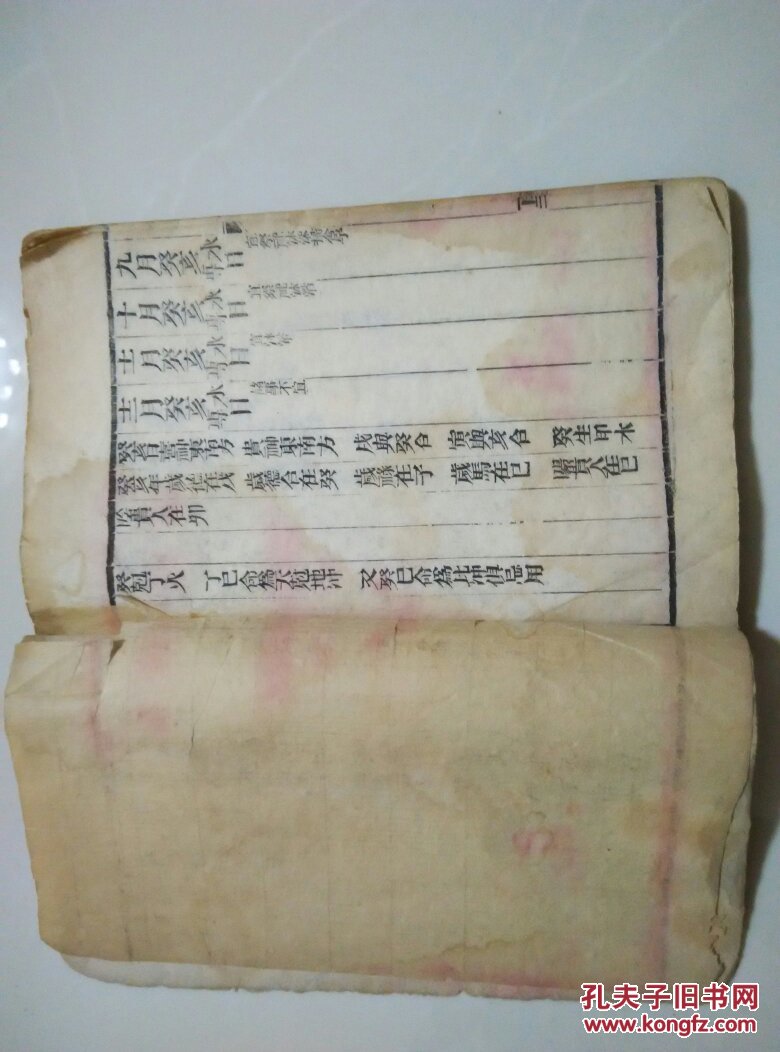 九月癸亥水日
十月癸亥水日 宜祭祀沐浴
十一月癸亥水日 宜沐浴
十二月癸亥水日 諸事不宜
癸日喜神東南方 貴神東南方 戊與癸合 寅與亥合 癸生甲木
癸亥年歲德在戊 歲德合在癸 歲祿在子 歲馬在巳 陽貴人在巳
陰貴人在卯
癸尅丁火 丁巳命為天尅地冲 又癸巳命為比冲俱忌用
孔夫子旧书网
www.kongfz.com